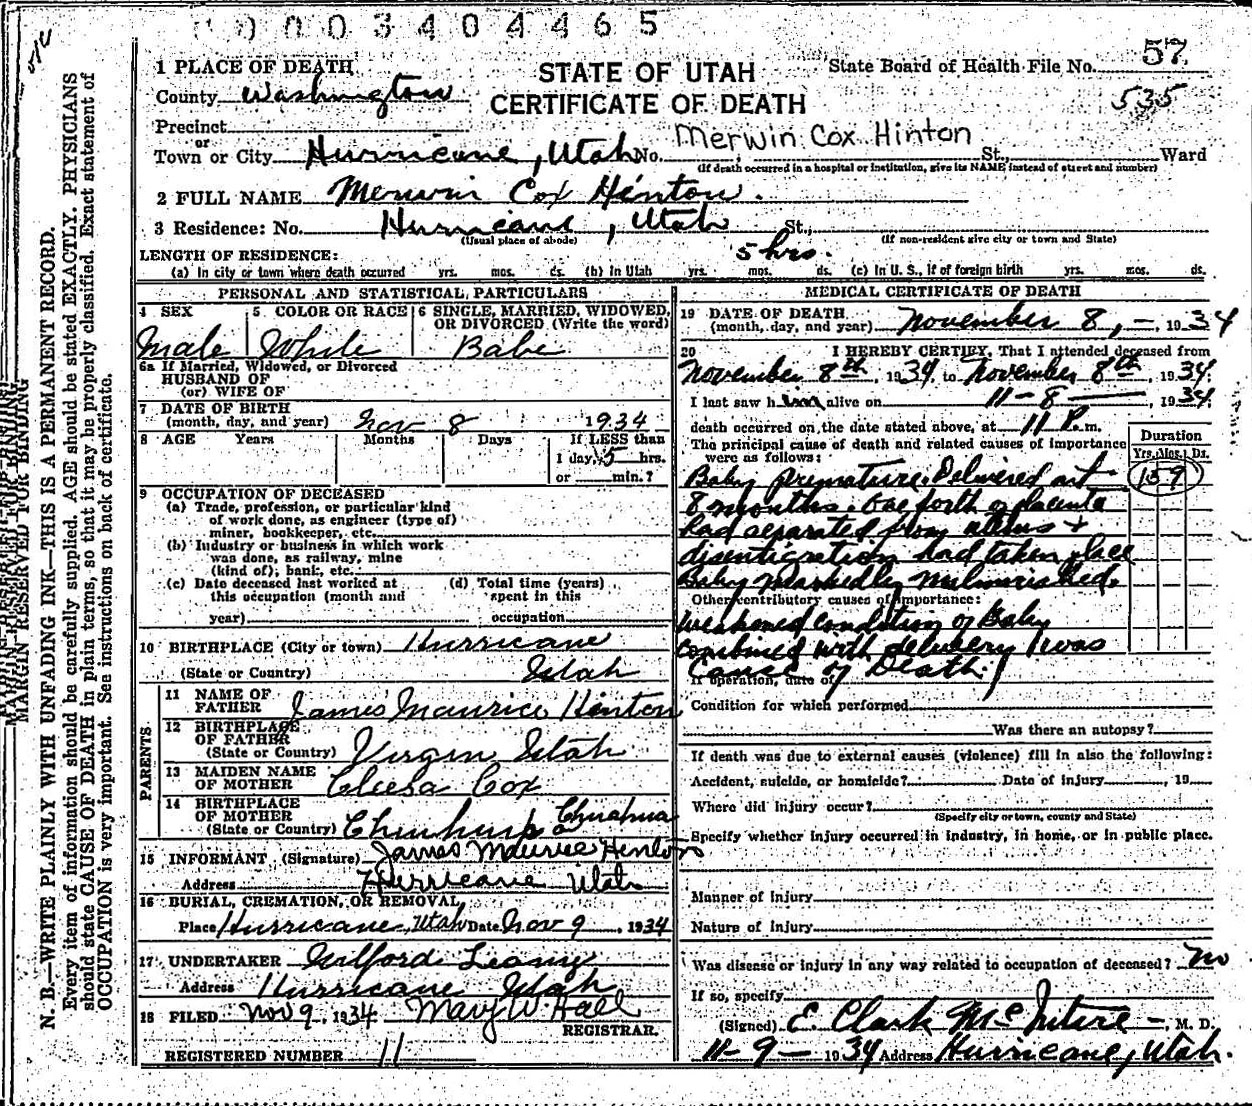 0 0 3 4 0 4 4 6 5
1 PLACE OF DEATH
STATE OF UTAH
CERTIFICATE OF DEATH
State Board of Health File No. 57
535
County Washington
Precinct
or
Town or City Hurricane, Utah No. Merwin Cox Hinton St., Ward
(If death occurred in a hospital or institution, give its NAME instead of street and number)
2 FULL NAME Merwin Cox Hinton.
3 Residence: No. Hurricane, Utah St.,
(Usual place of abode) (If non-resident give city or town and State)
LENGTH OF RESIDENCE: 5 hrs.
(a) In city or town where death occurred yrs. mos. ds. (b) In Utah yrs. mos. ds. (c) In U. S., if of foreign birth yrs. mos. ds.
PERSONAL AND STATISTICAL PARTICULARS
4 SEX 5 COLOR OR RACE 6 SINGLE, MARRIED, WIDOWED, OR DIVORCED (Write the word)
Male White Babe
6a If Married, Widowed, or Divorced
HUSBAND OF
(or) WIFE OF
7 DATE OF BIRTH
(month, day, and year) Nov 8 1934
8 AGE Years Months Days If LESS than
1 day, 5 hrs.
or min.?
9 OCCUPATION OF DECEASED
(a) Trade, profession, or particular kind
of work done, as engineer (type of)
miner, bookkeeper, etc.
(b) Industry or business in which work
was done, as railway, mine
(kind of); bank, etc.
(c) Date deceased last worked at (d) Total time (years)
this occupation (month and spent in this
year) occupation
10 BIRTHPLACE (City or town) Hurricane
(State or Country) Utah
PARENTS
11 NAME OF
FATHER James Maurice Hinton
12 BIRTHPLACE
OF FATHER
(State or Country) Virgin Utah
13 MAIDEN NAME
OF MOTHER Cox
14 BIRTHPLACE
OF MOTHER Chihuahua
(State or Country)
15 INFORMANT (Signature) James Maurice Hinton
Address Hurricane Utah
16 BURIAL, CREMATION, OR REMOVAL
Place Hurricane, Utah Date Nov 9, 1934
17 UNDERTAKER Wilford Leany
Address Hurricane Utah
18 FILED Nov 9, 1934 Mary W. Hall
REGISTRAR.
REGISTERED NUMBER 11
MEDICAL CERTIFICATE OF DEATH
19 DATE OF DEATH
(month, day, and year) November 8, - , 1934
20 I HEREBY CERTIFY, That I attended deceased from
November 8th, 1934, to November 8th, 1934.
I last saw him alive on 11-8-, 1934,
death occurred on the date stated above, at 11 P. m.
The principal cause of death and related causes of importance
were as follows:
Duration
Yrs. Mos. Ds.
159
Baby premature. Delivered at
8 months. One forth of placenta
had separated from uterus +
disentigretion had taken place
Baby markedly
Other contributory causes of importance:
Weakened condition of Baby
combined with delivery was
Cause of Death.
If operation, date of
Condition for which performed
Was there an autopsy?
If death was due to external causes (violence) fill in also the following:
Accident, suicide, or homicide? Date of injury , 19
Where did injury occur?
(Specify city or town, county and State)
Specify whether injury occurred in industry, in home, or in public place.
Manner of injury
Nature of injury
Was disease or injury in any way related to occupation of deceased? no
If so, specify
(Signed) E. Clark McIntire -, M. D.
11-9- 1934 Address Hurricane, Utah.
MARGIN RESERVED FOR BINDING
N. B.—WRITE PLAINLY WITH UNFADING INK—THIS IS A PERMANENT RECORD.
Every item of information should be carefully supplied. AGE should be stated EXACTLY. PHYSICIANS
should state CAUSE OF DEATH in plain terms, so that it may be properly classified. Exact statement of
OCCUPATION is very important. See instructions on back of certificate.